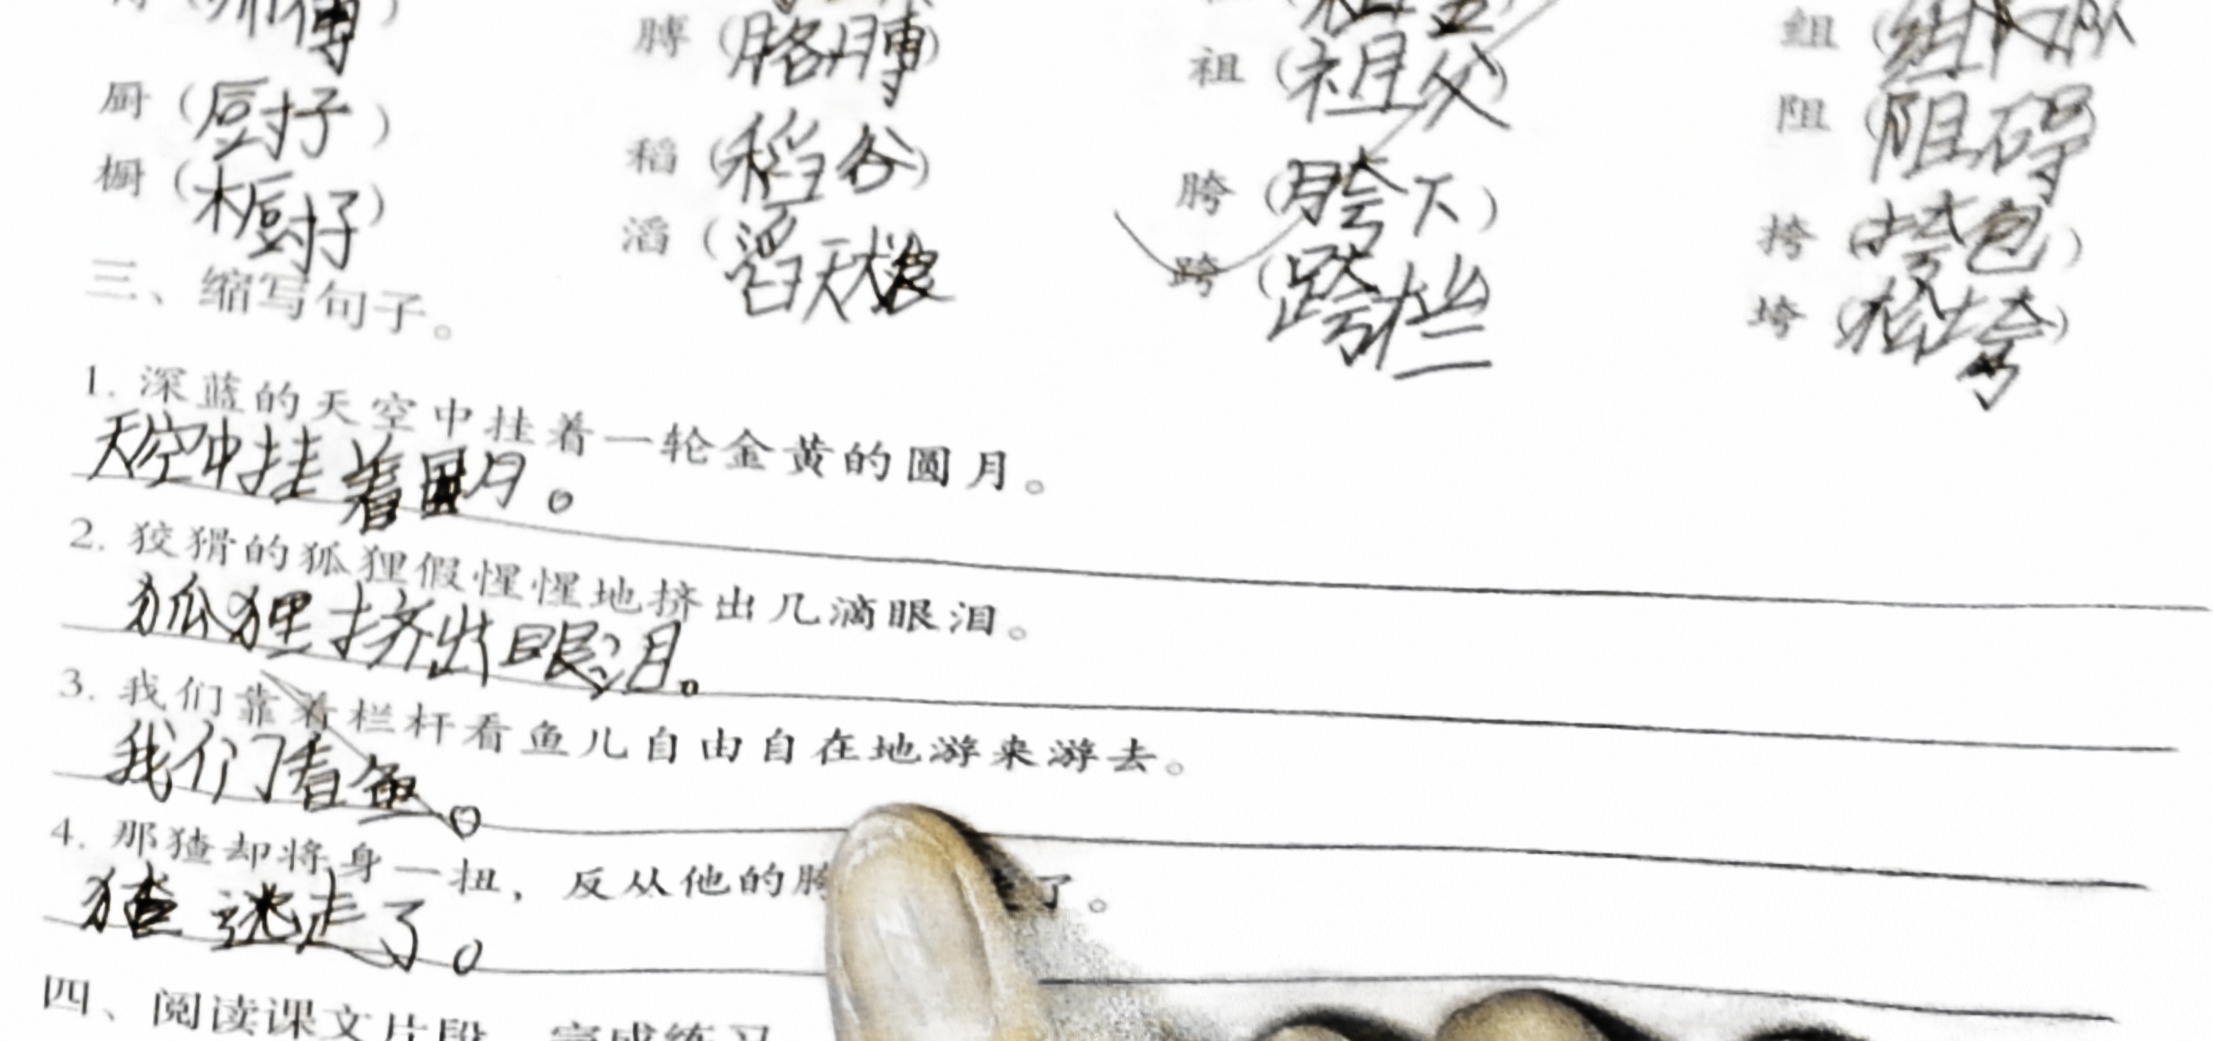 膊（胳膊） 祖（祖父） 组（组队
厨（厨子） 稻（稻谷） 阻（阻碍
橱（橱子） 滔（滔天浪 胯（胯下） 挎（挎包）
跨（跨栏 垮（
三、缩写句子。
1. 深蓝的天空中挂着一轮金黄的圆月。
天空中挂着圆月。
2. 狡猾的狐狸假惺惺地挤出几滴眼泪。
狐狸挤出眼泪。
3. 我们靠着栏杆看鱼儿自由自在地游来游去。
我们看鱼。
4. 那猹却将身一扭，反从他的胯 了。
猹逃走了。
四、阅读课文片段，完成练习